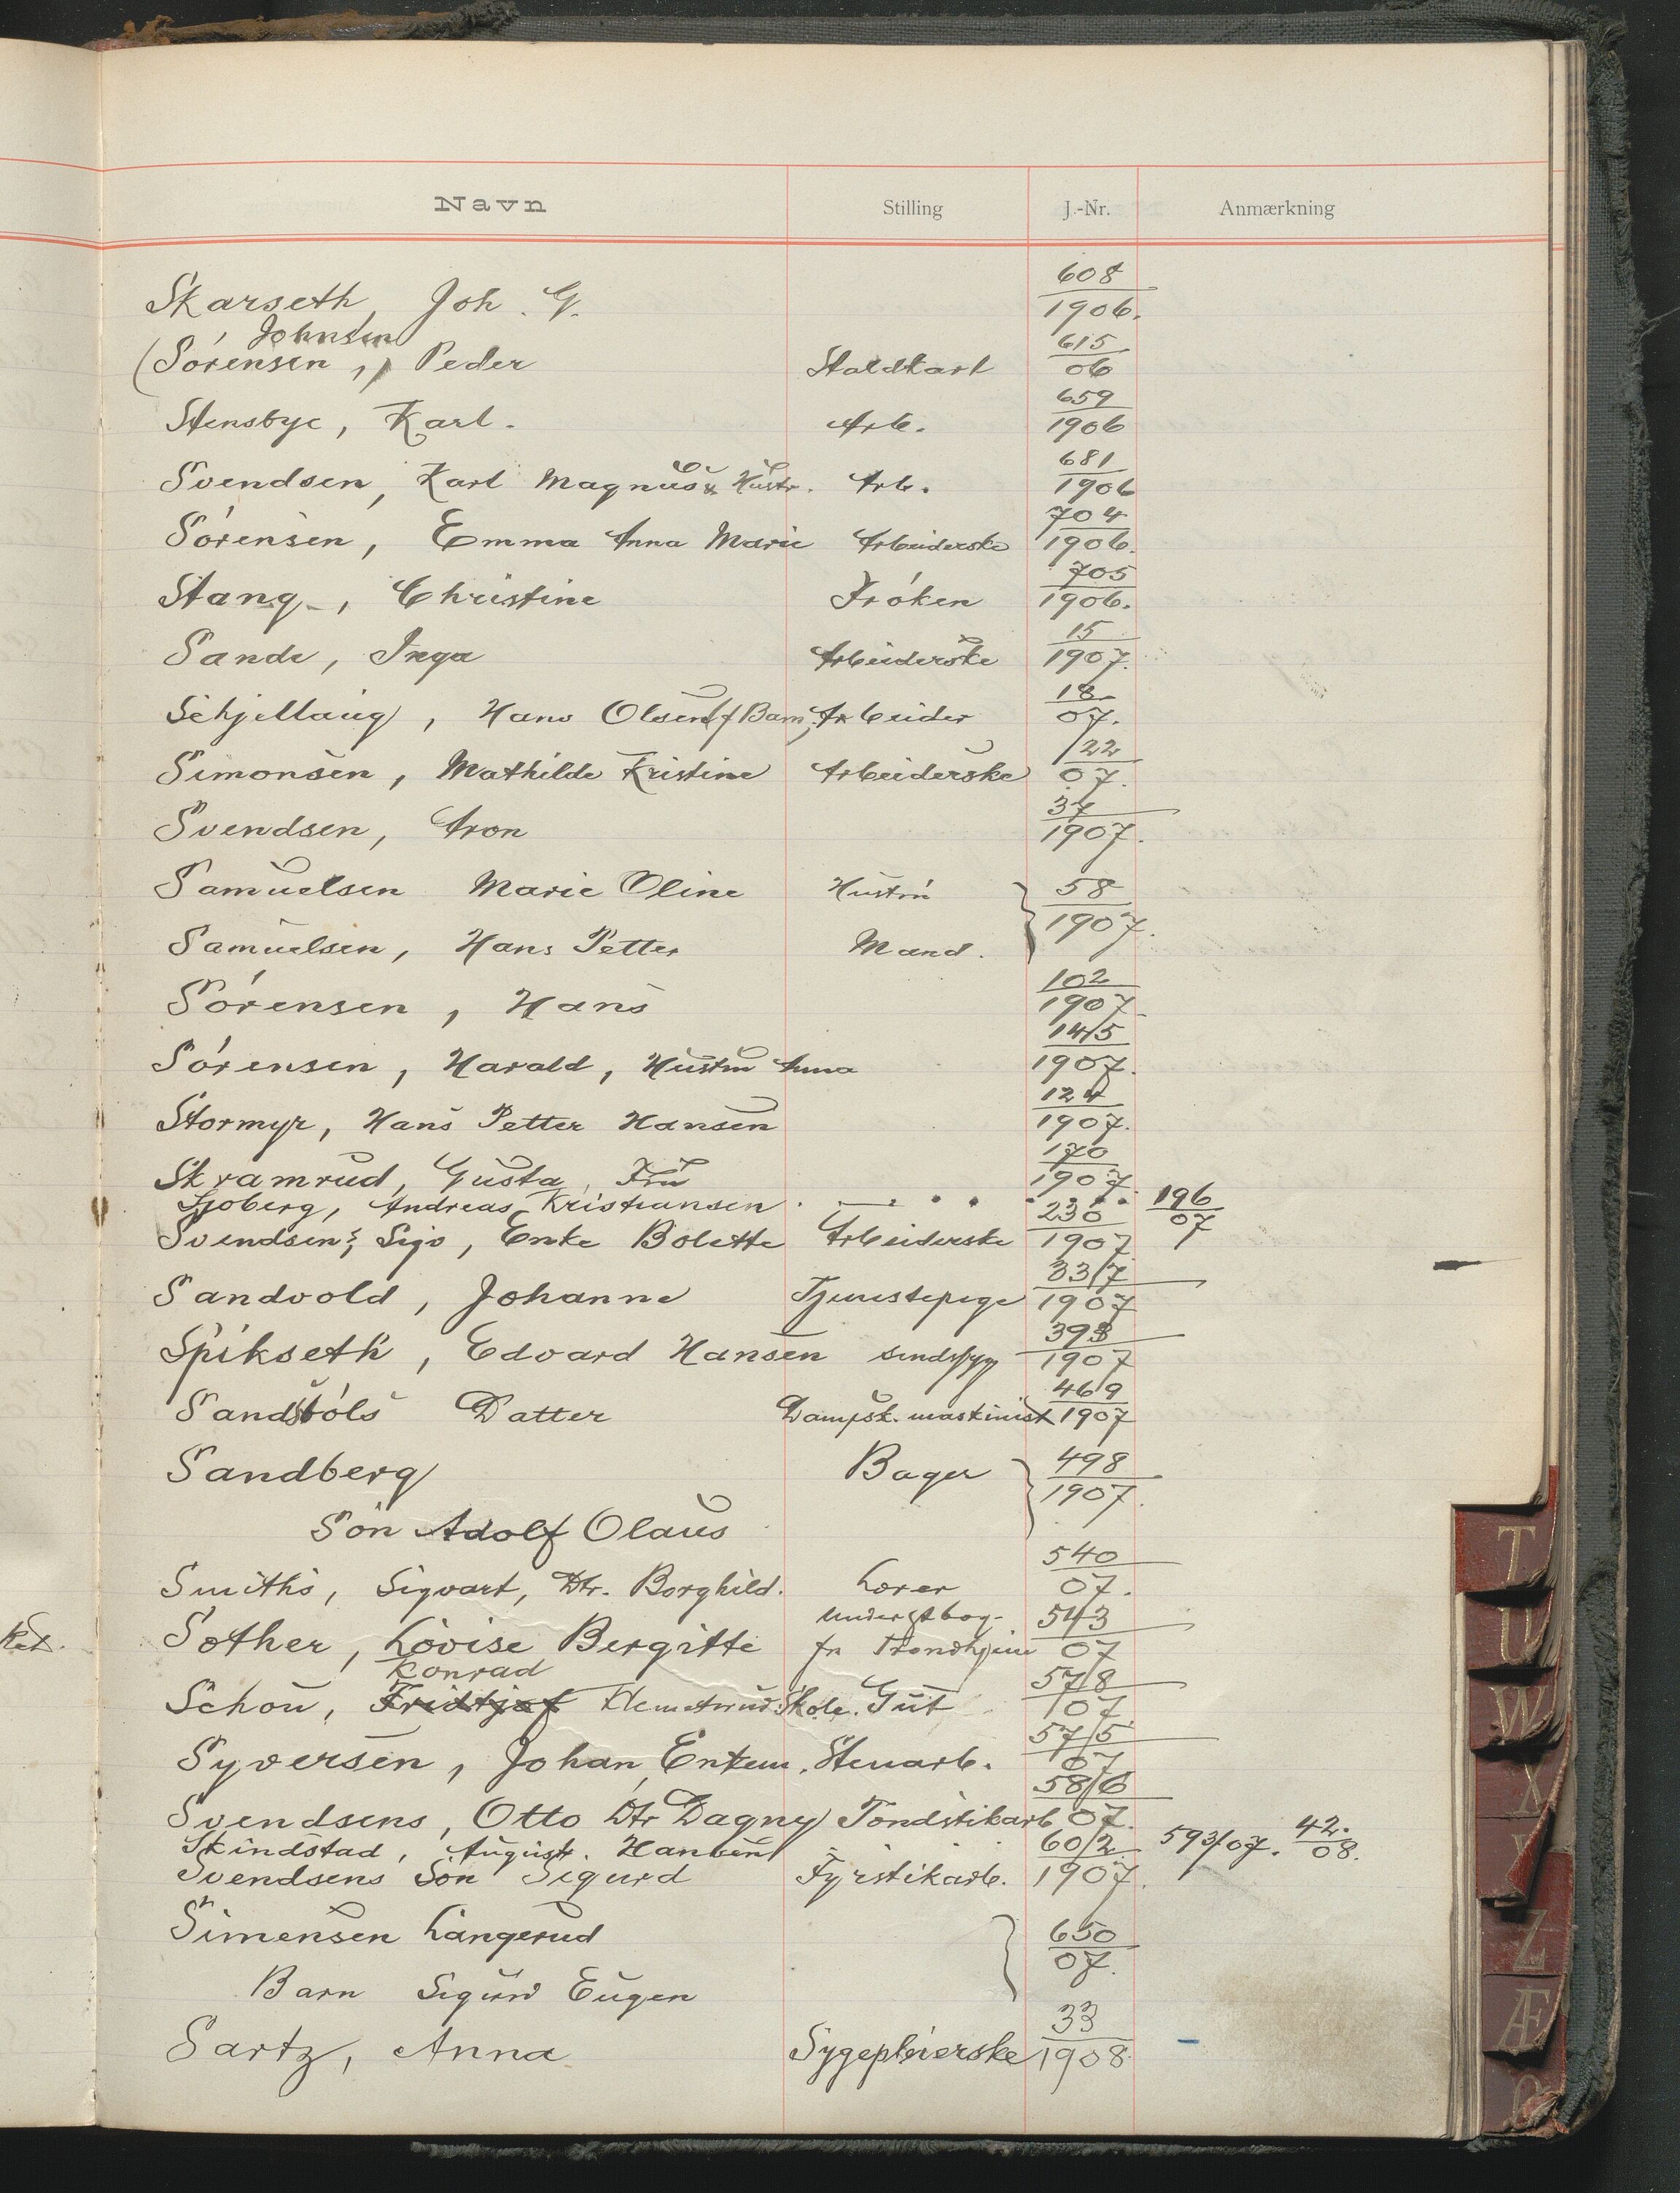 Navn Stilling J.-Nr. Anmærkning
Skarseth, Joh. G. 608/1906.
Johnsen
(Sórensen,) Peder Staldkarl 615/06
Stensbye, Karl. Arb. 659/1906
Svendsen, Karl Magnus & Hustr. Arb. 681/1906
Sórensen, Emma Anna Marie Arbeiderske 704/1906.
Stang, Christine Fróken 705/1906.
Sande, Inga Arbeiderske 15/1907.
Schjellaug, Hans Olsen (f Barn) Arbeider 18/07.
Simonsen, Mathilde Kristine Arbeiderske 22/07.
Svendsen, Aron 37/1907.
Samuelsen Marie Oline Hustru 58/1907.
Samuelsen, Hans Petter Mand.
Sórensen, Hans 102/1907
Sórensen, Harald, Hustru Anna 145/1907.
Stormyr, Hans Petter Hansen 124/1907.
Skramrud, Gusta, Fru 170/1907
Sjoberg, Andreas Kristiansen 196/07
Svendsens, Sigv, Enke Bolette Arbeiderske 230/1907
Sandvold, Johanne Tjenestepige 33/7 1907
Spikseth, Edvard Hansen sindssyg 393/1907
Datter Dampsk. maskinist 469/1907
Sandberg Bager 498/1907.
Són Adolf Olaus
Smiths, Sigvart, Dtr. Borghild. Lórer 540/07.
Sother, Lovise Bergitte fr Trondhjem 543/07
Konrad
Schou, Fridtjof Klemetsrud Skole. Gut 578/07
Syversen, Johan, Enkem. Stenarb. 575/07
Svendsens, Otto Dtr Dagny Tóndstikarb 586/07.
Skindstad, August. Hansen 593/07. 42./08.
Svendsens Són Sigurd Fyrstikarb. 602/1907.
Simensen Langerud 650/07.
Barn Sigurd Eugen
Sartz, Anna Sygepleierske 33/1908
T
U
W
X
Y
Z
Æ
Ø